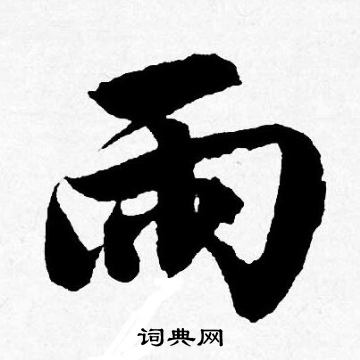 雨
词典网